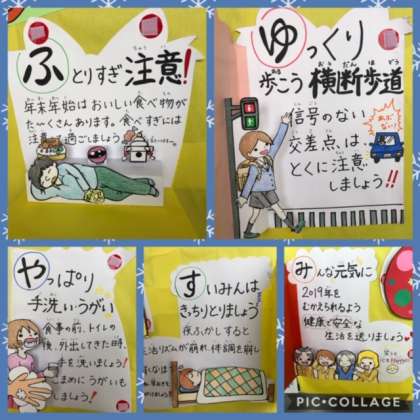 ふとりすぎ注意!
年末年始はおいしい食べ物が
たくさんあります。食べすぎには
注意して過ごしましょう
ゆっくり
歩こう横断歩道
信号のない
交差点は
とくに注意
しましょう!!
あぶない!
やっぱり
手洗いうがい
食事の前、トイレの
後、外出してきた時、
手を洗いましょう!
こまめにうがいも
しましょう!
すいみんは
きっちりとりましょう
夜ふかしすると
生活リズムが崩れ、体調を崩し
みんな元気に
2019年を
むかえられるよう
健康で安全な
生活を送りましょう
PIC•COLLAGE